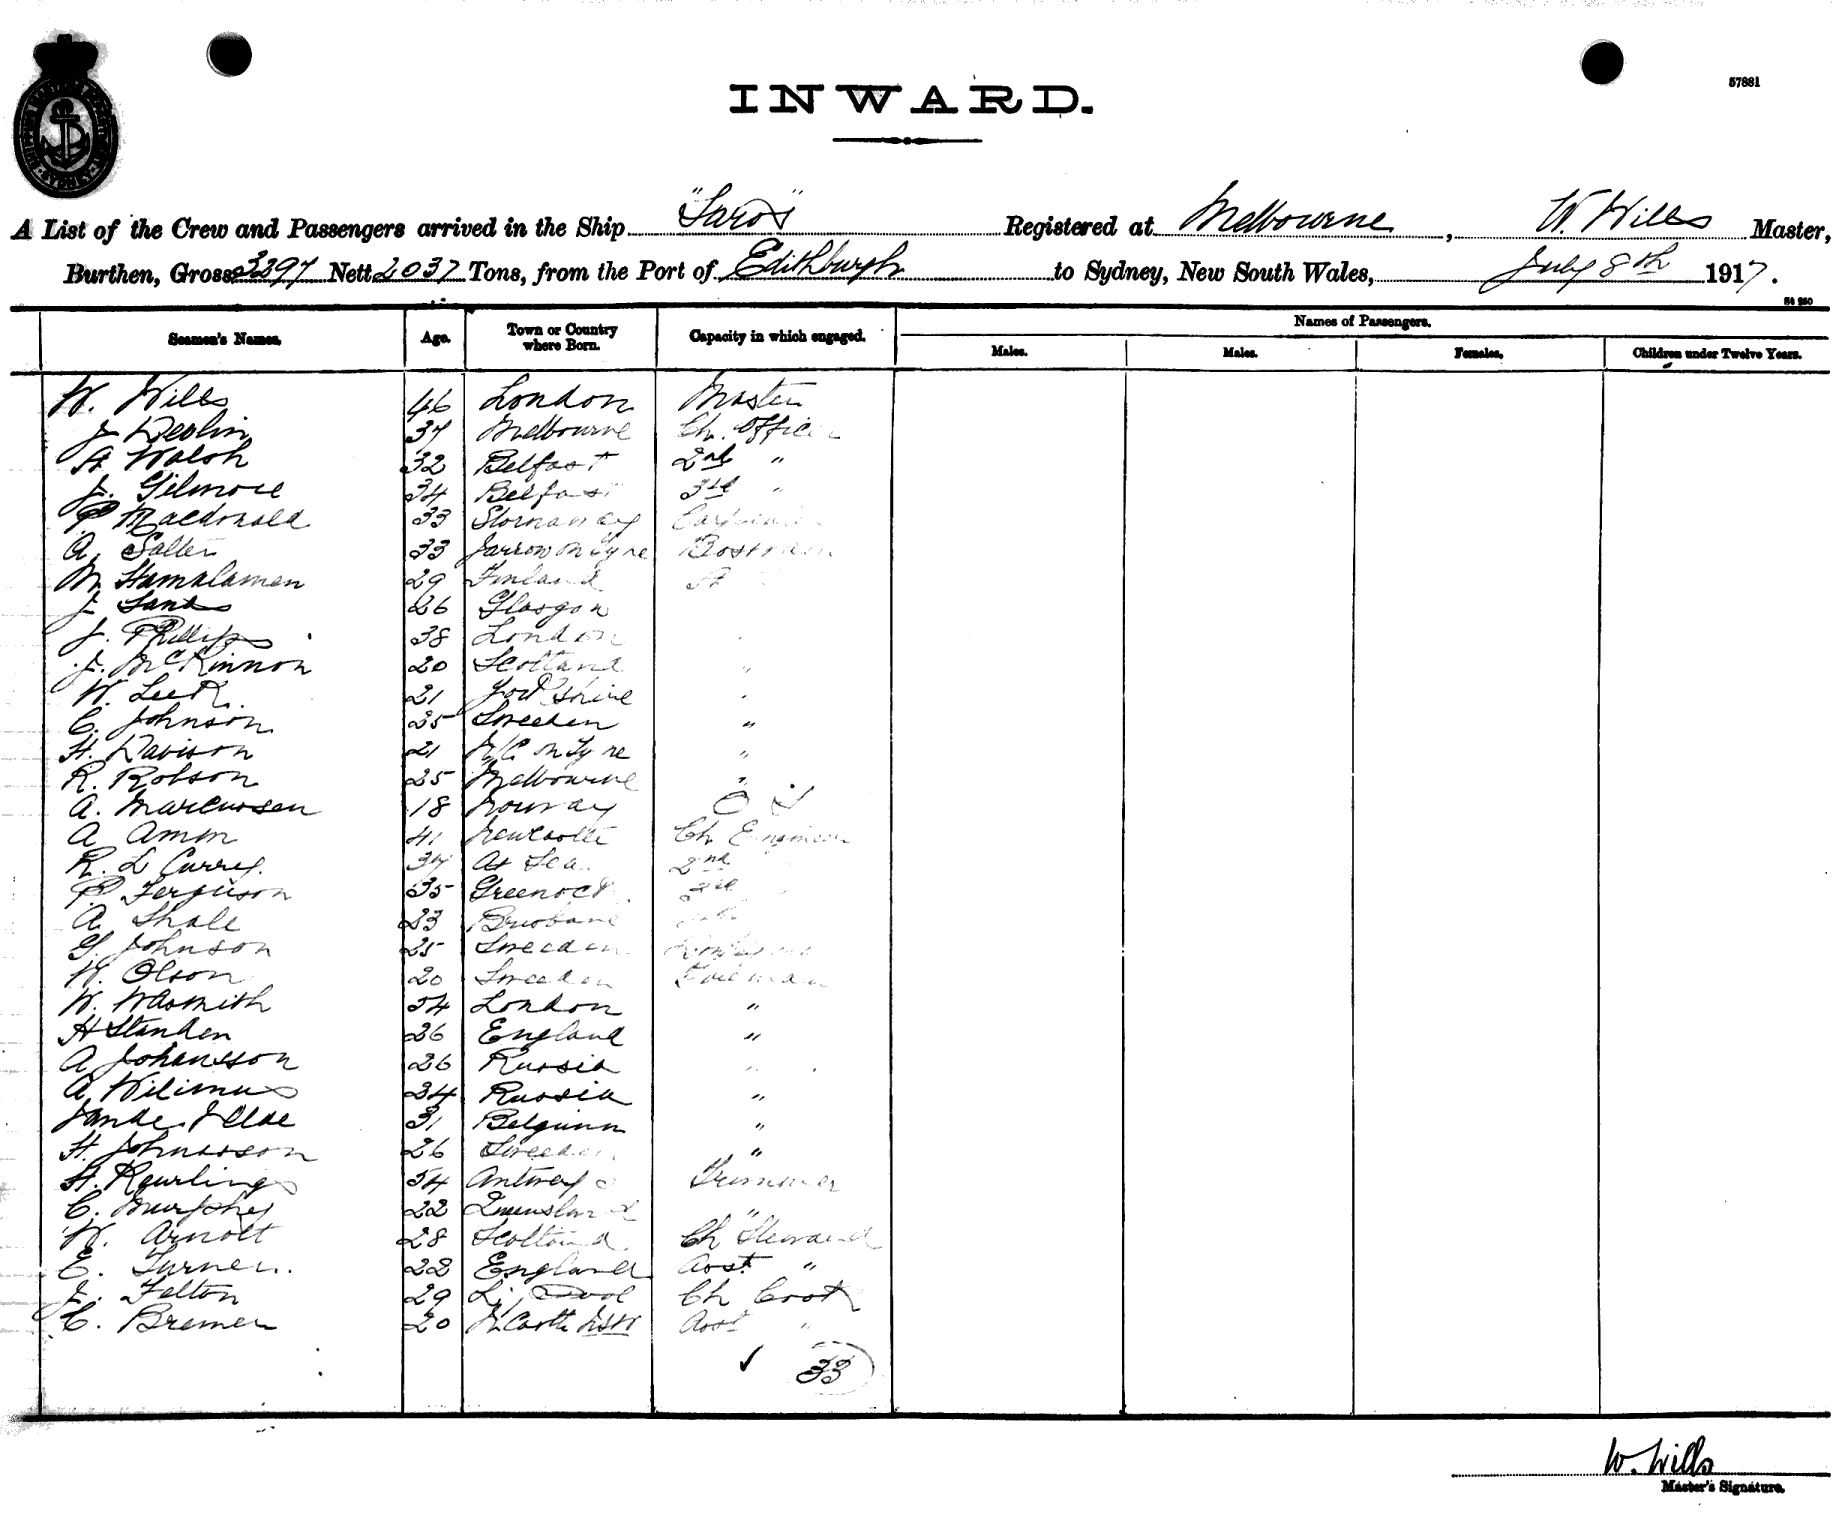 INWARD.
57881
SYDNEY
A List of the Crew and Passengers arrived in the Ship "Saros" Registered at Melbourne, W. Wills Master,
Burthen, Gross 3397 Nett 2037 Tons, from the Port of Edithburgh to Sydney, New South Wales, July 8th 1917.
St 250
Seamen's Names. Age. Town or Country where Born. Capacity in which engaged. Names of Passengers.
Males. Males. Females. Children under Twelve Years.
W. Wills 46 London Master
J Devlin 37 Melbourne Ch. Officer
A Walsh 32 Belfast 2nd "
J. Gilmore 34 Belfast 3rd "
P Macdonald 33 Stornaway Carpenter
A. Salter 33 Jarrow on Tyne Bosman
M 29 Finland
J Sands 26 Glasgow
J. Phillips 38 London
J. McKinnon 20 Scotland "
W. Leek 21 Yorkshire "
C. Johnson 25 Sweeden "
H. Davison 21 N/C on Tyne "
R. Robson 25 Melbourne "
A. Marcussen 18 Norway
A Amm 41 Newcastle Ch Engineer
R. L Currey. 37 At Sea. 2nd
P Ferguson 35 Greenock 3rd
A Shale 23 Brisbane
G. Johnson 25 Sweeden
W. Olson 20 Sweeden Fireman
W. Wasmith 54 London "
H Standen 26 England "
A Johansson 26 Russia "
A 24 Russia "
31 Belguim "
H. Johnasson 26 Sweeden "
H. Rawlings 54 Antwerp Trimmer
C. Murphey 22 Queensland "
W. Arnott 28 Scotland Ch Steward
E. Turner. 22 England Asst "
J. Felton 29 Ch Cook
C. Bremer 20 N Castle NSW Asst "
33
W. Wills
Master's Signature.